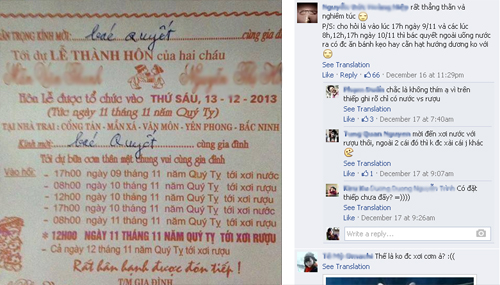 TRÂN TRỌNG KÍNH MỜI: bác Quyết cùng gia đình
Tới dự LỄ THÀNH HÔN của hai cháu
Hôn Lễ được tổ chức vào THỨ SÁU, 13 - 12 - 2013
(Tức ngày 11 tháng 11 năm Quý Tỵ)
TẠI NHÀ TRAI : CÔNG TÁN - MÃN XÁ - VĂN MÔN - YÊN PHONG - BẮC NINH
Kính mời: bác Quyết cùng gia đình
Tới dự bữa cơm thân mật chung vui cùng gia đình
Vào hồi: - 17h00 ngày 09 tháng 11 năm Quý Tỵ tới xơi nước
- 08h00 ngày 10 tháng 11 năm Quý Tỵ tới xơi rượu
- 12h00 ngày 10 tháng 11 năm Quý Tỵ tới xơi rượu
- 17h00 ngày 10 tháng 11 năm Quý Tỵ tới xơi nước
- 08h00 ngày 11 tháng 11 năm Quý Tỵ tới xơi rượu
* 12H00 NGÀY 11 THÁNG 11 NĂM QUÝ TỴ TỚI XƠI RƯỢU
- Cả ngày 12 tháng 11 năm Quý Tỵ tới xơi rượu
Rất hân hạnh được đón tiếp !
T/M GIA ĐÌNH
rất thẳng thắn và
nghiêm túc
P/S: cho hỏi là vào lúc 17h ngày 9/11 và các lúc
8h,12h,17h ngày 10/11 thì bác quyết ngoài uống nước
ra có đc ăn bánh kẹo hay cắn hạt hướng dương ko với
See Translation
Like · Reply · 66 · December 16 at 11:29pm
chắc là không thím ạ vì trên
thiếp ghi rõ chỉ có nước vs rượu
See Translation
Like · 3 · December 17 at 7:40am
mời đến xơi nước với
rượu thôi, ngoài 2 cái đó thì k đc xái cái j khác
See Translation
Like · 1 · December 17 at 9:07am
Có đặt
thiếp chưa đấy? =))))
See Translation
Like · December 17 at 9:26am
Write a reply...
Thế là ko đc xơi cơm à? :((
See Translation